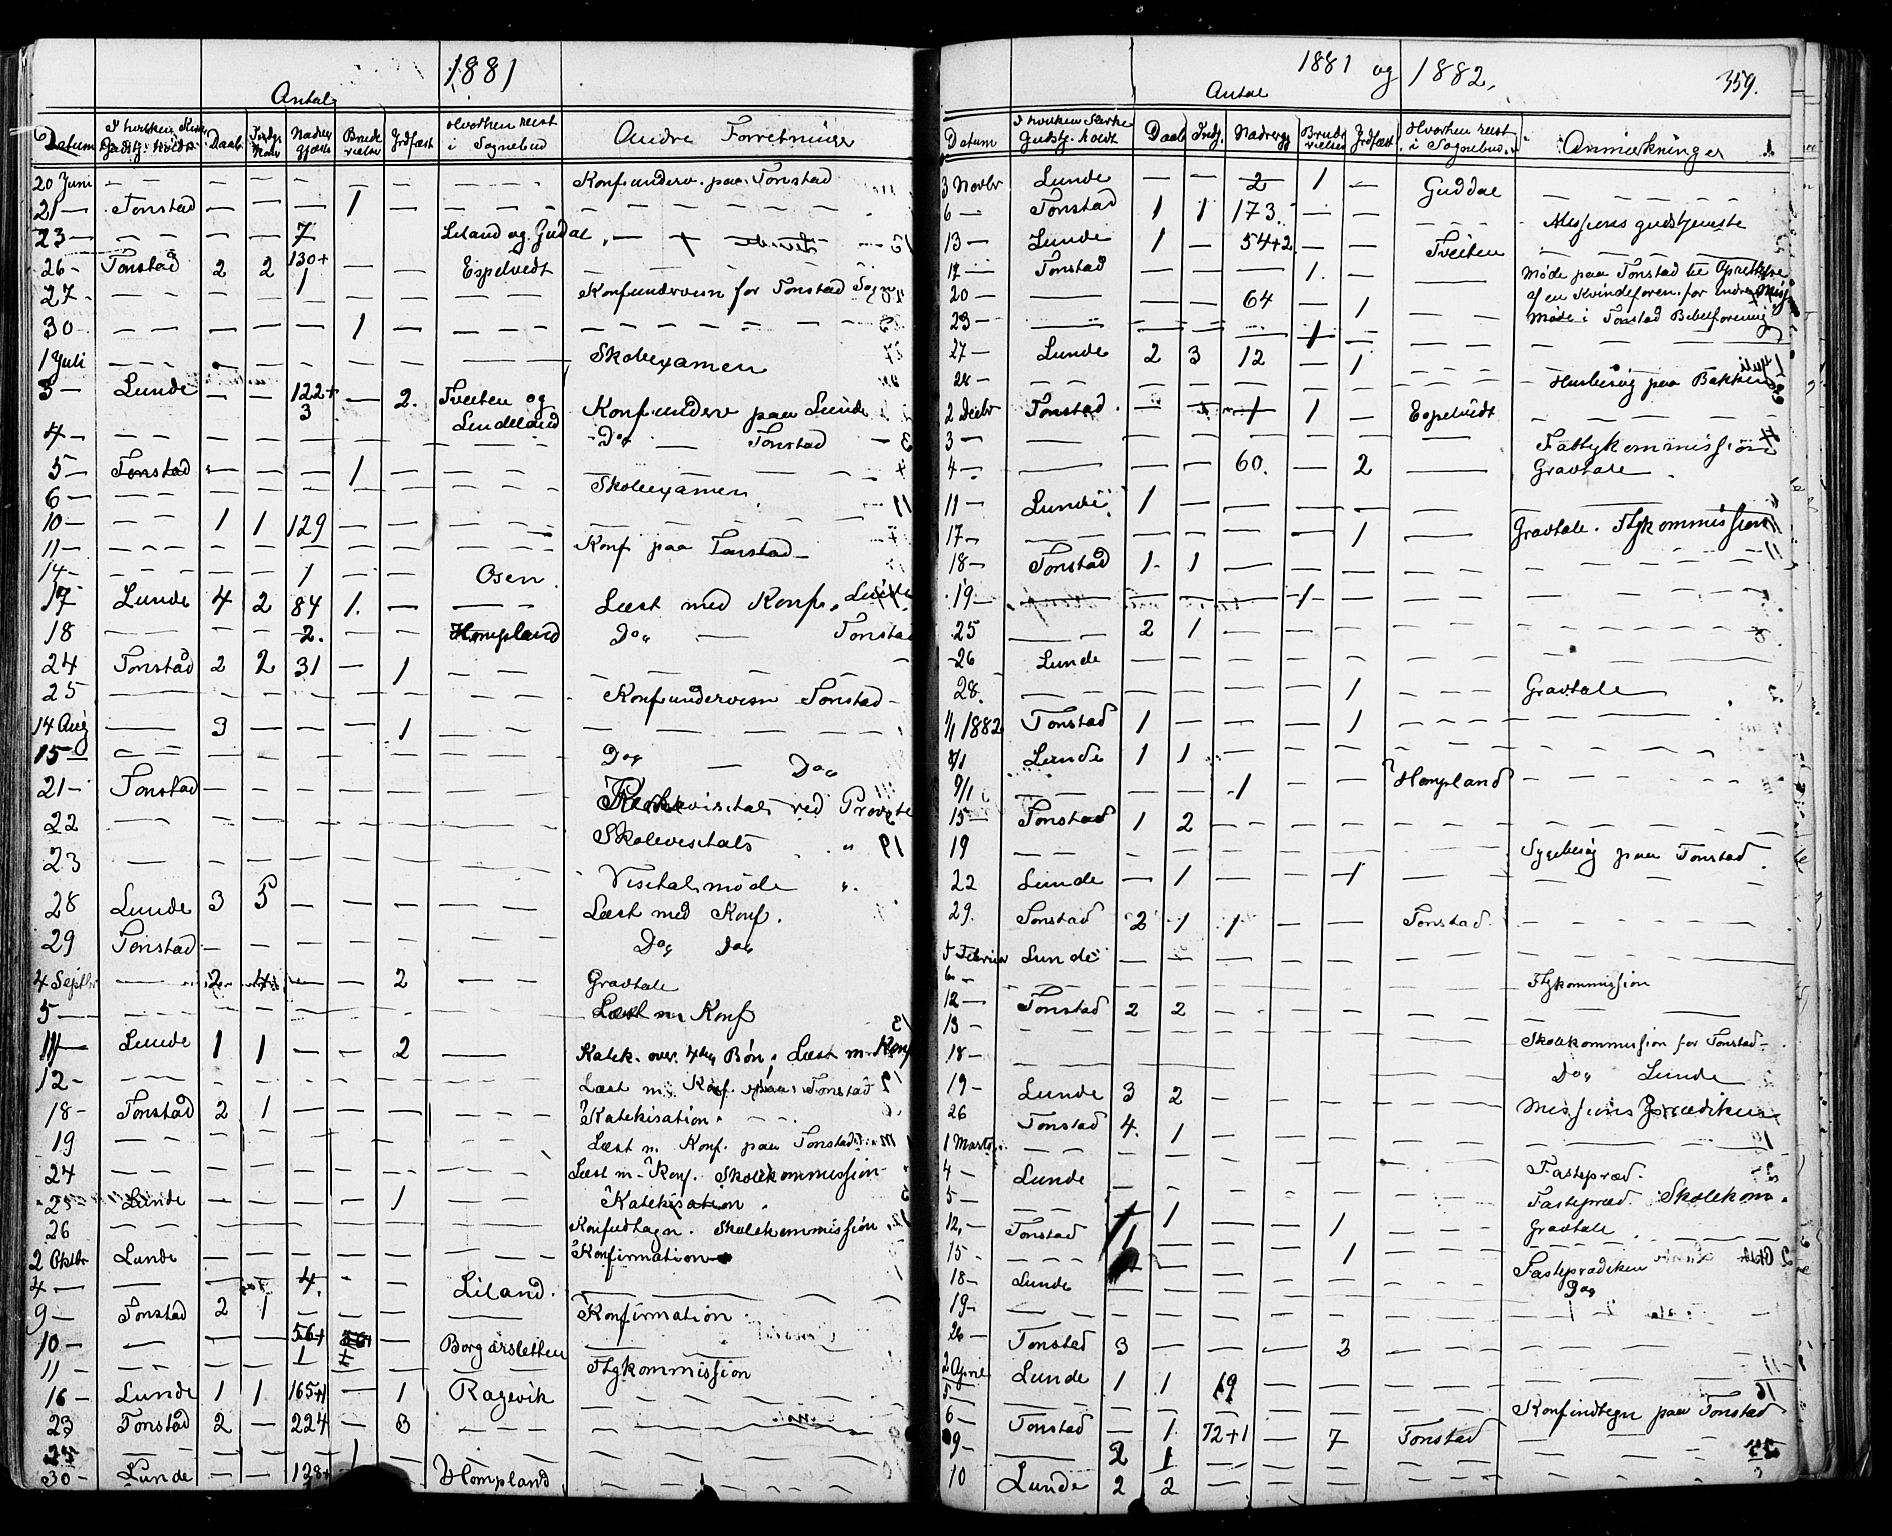 1881
Antal
Datum I hvilken Kirke Gudstj. holdt Daab Nadver gjæster Brude vielse Jrdfæst Hvorhen reist i Sognebud Andre Forretninger
20 Juni — — — — — — — Konfunderv. paa Tonstad
21 — Tonstad — — — 1 — — —
23 — — — — 7 — — Liland og Gudal
26 - Tonstad 2 2 130+1 — — Espelvedt —
27 - — — — — — — — Konfundervisn for Tonstad Sogn
30 - — — — — 1 — — —
1 Juli — — — — — — — Skoleexamen
3 — Lunde — — 122+3 — 2. Tveiten og Lindeland Konfunderv paa Lunde
4 — — — — — — — — Do — Tonstad
5 — Tonstad — — — 1 — — —
6 — — — — — — — — Skoleexamen
10 — — 1 1 129 — — — —
11 — — — — — — — — Konf paa Tonstad
14 — — — — 1 — — Osen.
17 Lunde 4 2 84 1. — — Læst med Konf. Lunde
18 — — — 2. — — Hompland Do — Tonstad
24 Tonstad 2 2 31 — 1 — —
25 — — — — — — — Konfundervisn Tonstad
14 Aug — 3 — — — 1 — —
15 — — — — — — — — Do — Do
21 - Tonstad — — — — — — Kirkevisitats ved Provste
22 — — — — — — — Skolevisitats "
23 — — — — — — — Visitatsmøde "
28 Lunde 3 5 — — — — Læst med Konf.
29 Tonstad — — — — — — Do Do
4 Septbr — 2 4 — — 2 — Gravtale
5 — — — — — — — — Læst m Konf
11 — Lunde 1 1 — — 2 — Katek. over 4de Bøn. Læst m. Konf
12 - — — — — — — — Læst m. Konf. paa Tonstad
18 - Tonstad 2 1 — — — — Katekisation.
19 — — — — — — — Læst m. Konf. paa Tonstad
24 — — — — — — — Læst m. Konf. Skolekommission
25 - Lunde — — — — 1 — Katekisation.
26 — — — — — — — Konfudtagn. Skolekommission
2 Oktbr Lunde — — — — — — Konfirmation
4 — — — — 4. — — Liland.
9 — Tonstad 2 1 — — — — Konfirmation
10 — — — — 56+1 — Borgarsletten —
11 — — — — — — — — Ftgkommission
16 — Lunde 1 1 165+1 — 1 Ragevik
23 Tonstad 2 — 224 — 3 —
25 — — — — 1 — —
30 - Lunde — — 128+ — — Hompland
1881 og 1882. 359.
Antal
Datum I hvilken Kirke Gudstj. holdt Daab Indg. Nadvergj Brude vielser Jrdfæst Hvorhen reist i Sognebud Anmærkninger
3 Novbr Lunde — — 2 1 — Guddal —
6 — Tonstad 1 1 173. — — — Missions gudstjeneste
13 — Lunde 1 — 54+2 — — Tveiten
17 — Tonstad — — — 1. — — Møde paa Tonstad til Oprettelse
20 — — — — 64 — 1 — af en Kvindeforen. for Indre Miss
23 — — — — 1 — — Møde i Tonstad Bibelforening
27 — Lunde 2 3 12 — 1 — —
28 — — — — — — — — Husbesøg paa Bakken
2 Decbr Tonstad. — — 1 1 — Espelvidt
3 — — — — — — — — Fattigkommission
4 — — — — 60. — 2 — Gravtale
11 — Lunde 1 — — — — — —
17 — — — — — — 1 — Gravtale. Ftgkommission
18 — Tonstad 1. 1 — — — — —
19 — — — — — 1 — — —
25 — 2 1 — — — — —
26 Lunde — — — — — — —
28. — — — — — 1 — Gravtale
1/1 1882 Tonstad 1 — — — 1 — —
8/1 Lunde 1 1 — — — — —
9/1 — — — 1 — — Hompland —
15 — Tonstad 1 2 — — — — —
19 — — — — — — — Sygebesøg paa Tonstad.
22 Lunde — 1 — — 1 — —
29. Tonstad 2 1 1 — — Tonstad. —
5 Februar Lunde — — — — — — —
6 — Ftgkommission
12 — Tonstad 2 2 — — — — —
13 — — Skolekommission for Tonstad
18 — — Do Lunde
19 — Lunde 3 2 — — — — Missions Prædiken
26 Tonstad 4. 1 — — — — —
1 Marts — Fastepræd.
4 — Lunde — — — — — — Fastepræd. Skolekom.
5 — — 1 1 — — 1 — Gravtale
12. — Tonstad 1 — — — 1 —
15 — — Fasteprædiken
18 — Lunde — Do
19 — —
26 — Tonstad 3 — — — 3 — —
2 April Lunde 1 1 19 — — — —
5 — — — — — — — — Konfindtegn paa Tonstad
6 — Tonstad — 1. 72+1 — 7 Tonstad —
9 — — 2 1 — — — — —
10 Lunde 2 2 — — — — —